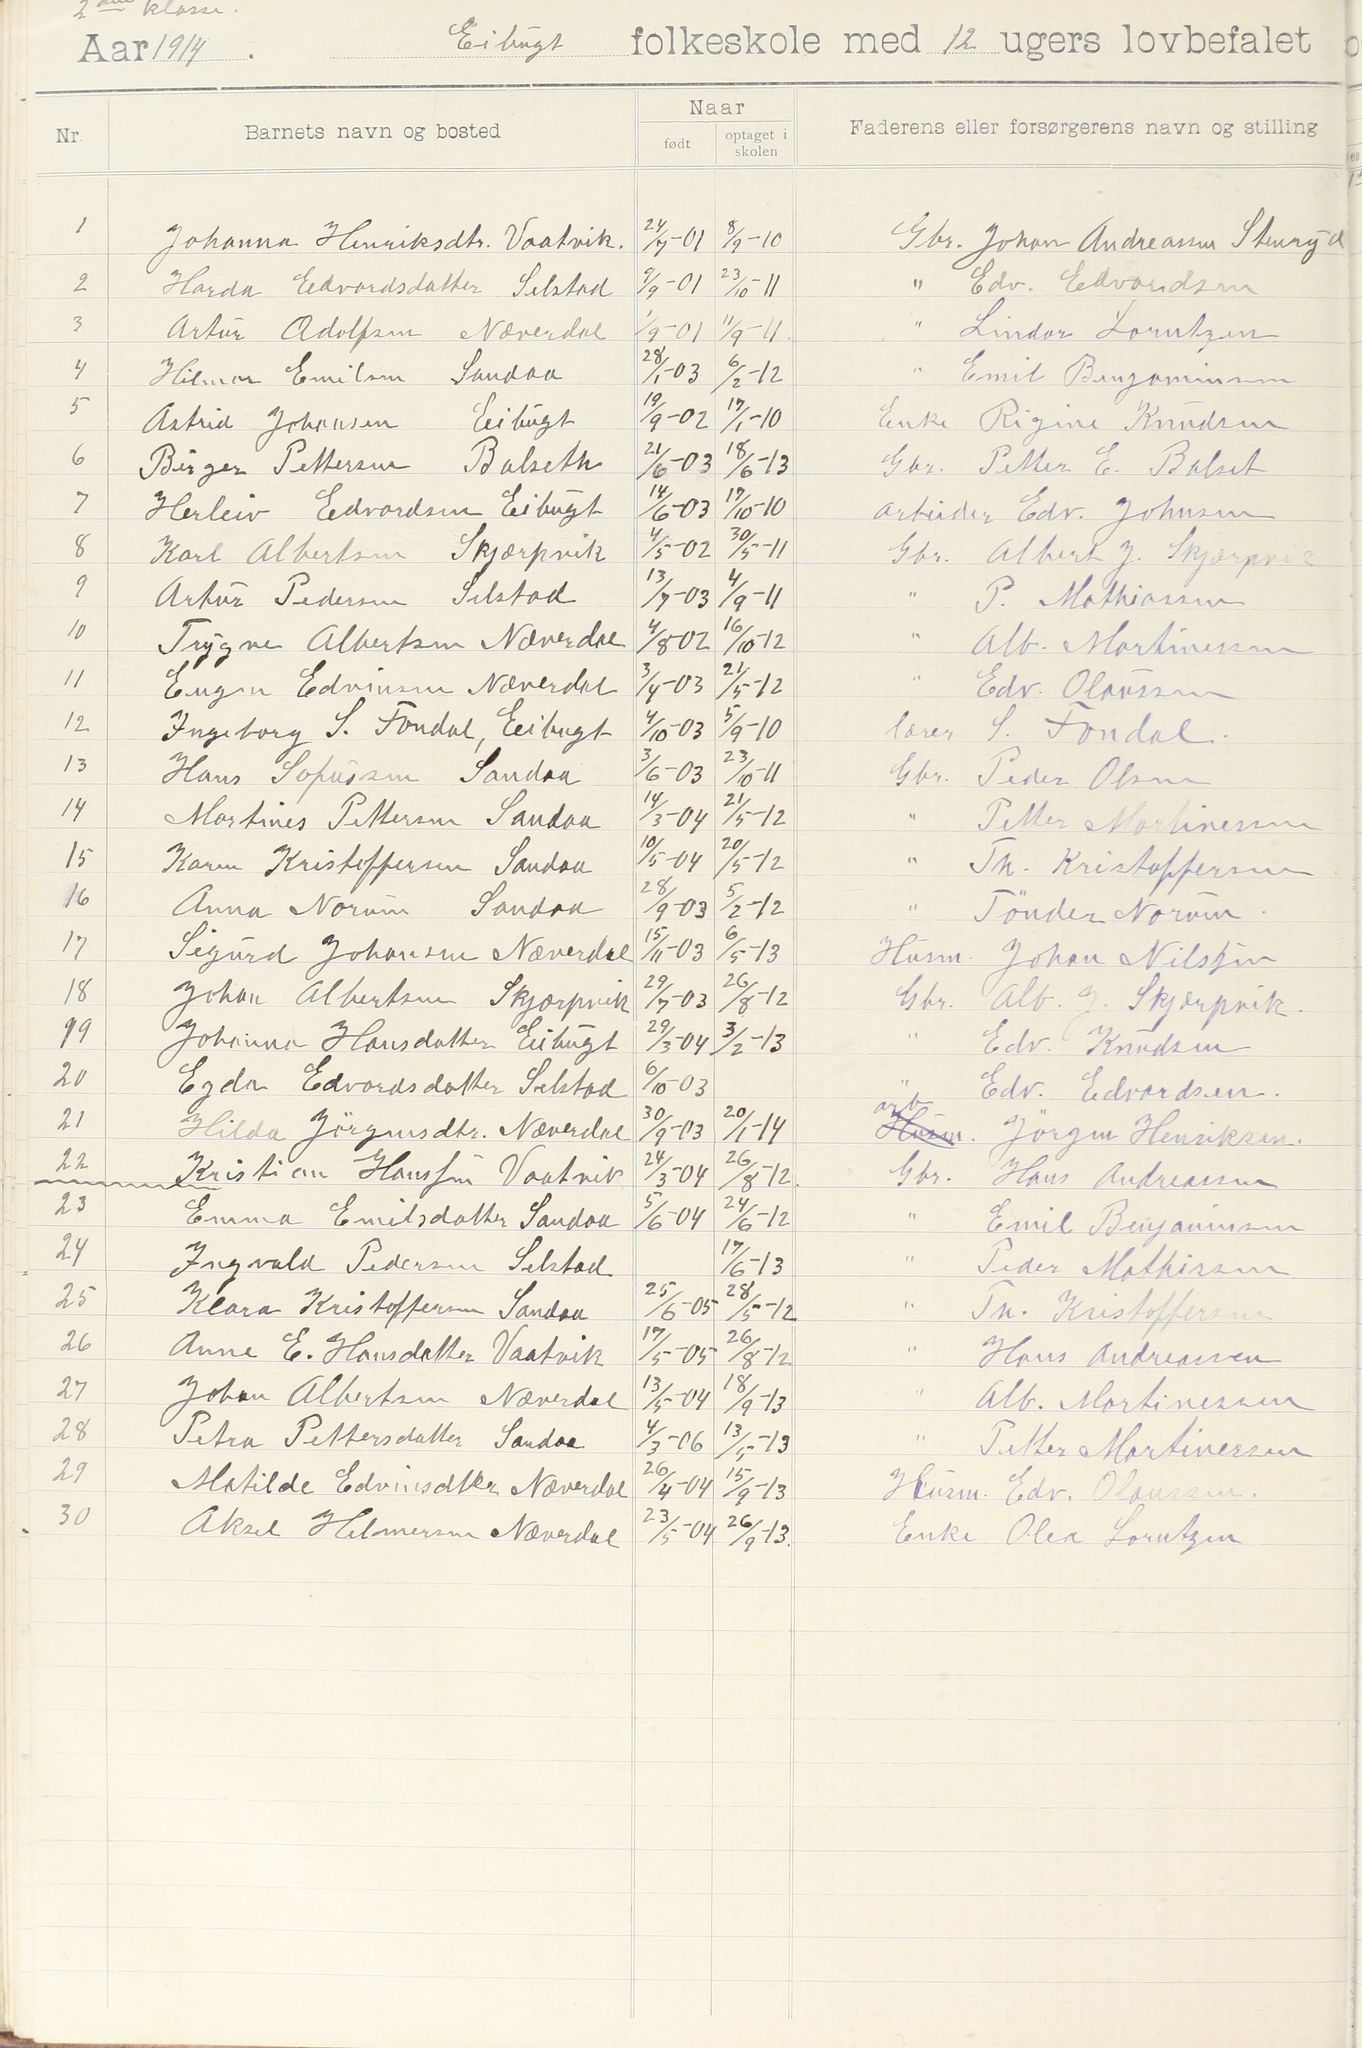 2den klasse.
Aar 1914. Eibugt folkeskole med 12 ugers lovbefalet
Nr. Barnets navn og bosted Naar Faderens eller forsørgerens navn og stilling
født optaget i skolen
1 Johanna Henriksdtr. Vaatvik. 24/7-01 8/9-10 Gbr. Johan Andreassen
2 Harda Edvardsdatter Selstad 9/9-01 23/10-11 " Edv. Edvardsen
3 Artur Adolfsen Næverdal 1/9-01 11/9-11 " Lindor Lorntzen
4 Hilmar Emilsen Sandaa 28/1-03 6/2-12 " Emil Benjaminsen
5 Astrid Johansen Eibugt 19/9-02 17/1-10 Enke Rigine Knudsen
6 Birger Pettersen Balseth 21/6-03 18/6-13 Gbr. Petter E. Balset
7 Herleiv Edvardsen Eibugt 14/6-03 17/10-10 arbeider Edv. Johnsen
8 Karl Albertsen Skjærpvik 4/5-02 30/5-11 Gbr. Albert J. Skjærpvik
9 Artur Pedersen Selstad 13/7-03 4/9-11 " P. Mathiassen
10 Trygve Albertsen Næverdal 4/8-02 16/10-12 " Alb. Martinessen
11 Eugen Edvinsen Næverdal 3/4-03 21/5-12 " Edv. Olaussen
12 Ingeborg S. Fondal, Eibugt 4/10-03 5/9-10 lærer S. Fondal.
13 Hans Sofussen Sandaa 3/6-03 23/10-11 Gbr. Peder Olsen
14 Martines Pettersen Sandaa 14/3-04 21/5-12 " Petter Martinessen
15 Karen Kristoffersen Sandaa 10/5-04 20/5-12 " Th. Kristoffersen
16 Anna Norum Sandaa 28/9-03 5/2-12 " Tönder Norum.
17 Sigurd Johansen Næverdal 15/11-03 6/5-13 Husm. Johan Nilssen
18 Johan Albertsen Skjærpvik 29/7-03 26/8-12 Gbr. Alb. J. Skjærpvik.
19 Johanna Hansdatter Eibugt 29/3-04 3/2-13 " Edv. Knudsen
20 Egda Edvardsdatter Selstad 6/10-03 " Edv. Edvardsen.
21 Hilda Jörgensdtr. Næverdal 30/9-03 20/1-14 arb Husm. Jörgen Henriksen.
22 Kristian Hanssen Vaatvik 24/3-04 26/8-12. Gbr. Hans Andreassen
23 Emma Emilsdatter Sandaa 5/6-04 24/6-12 " Emil Benjaminsen
24 Ingvald Pedersen Selstad 17/6-13 " Peder Mathissen
25 Klara Kristoffersen Sandaa 25/6-05 28/5-12 " Th. Kristoffersen
26 Anne E. Hansdatter Vaatvik 17/5-05 26/8-12 " Hans Andreassen
27 Johan Albertsen Næverdal 13/5-04 18/9-13 " Alb. Martinessen
28 Petra Pettersdatter Sandaa 4/3-06 13/5-13 " Petter Martinessen
29 Matilde Edvinsdtter Næverdal 26/4-04 15/9-13 Husm. Edv. Olaussen.
30 Aksel Helmersen Næverdal 23/5-04 26/9-13. Enke Olea Lorntzen